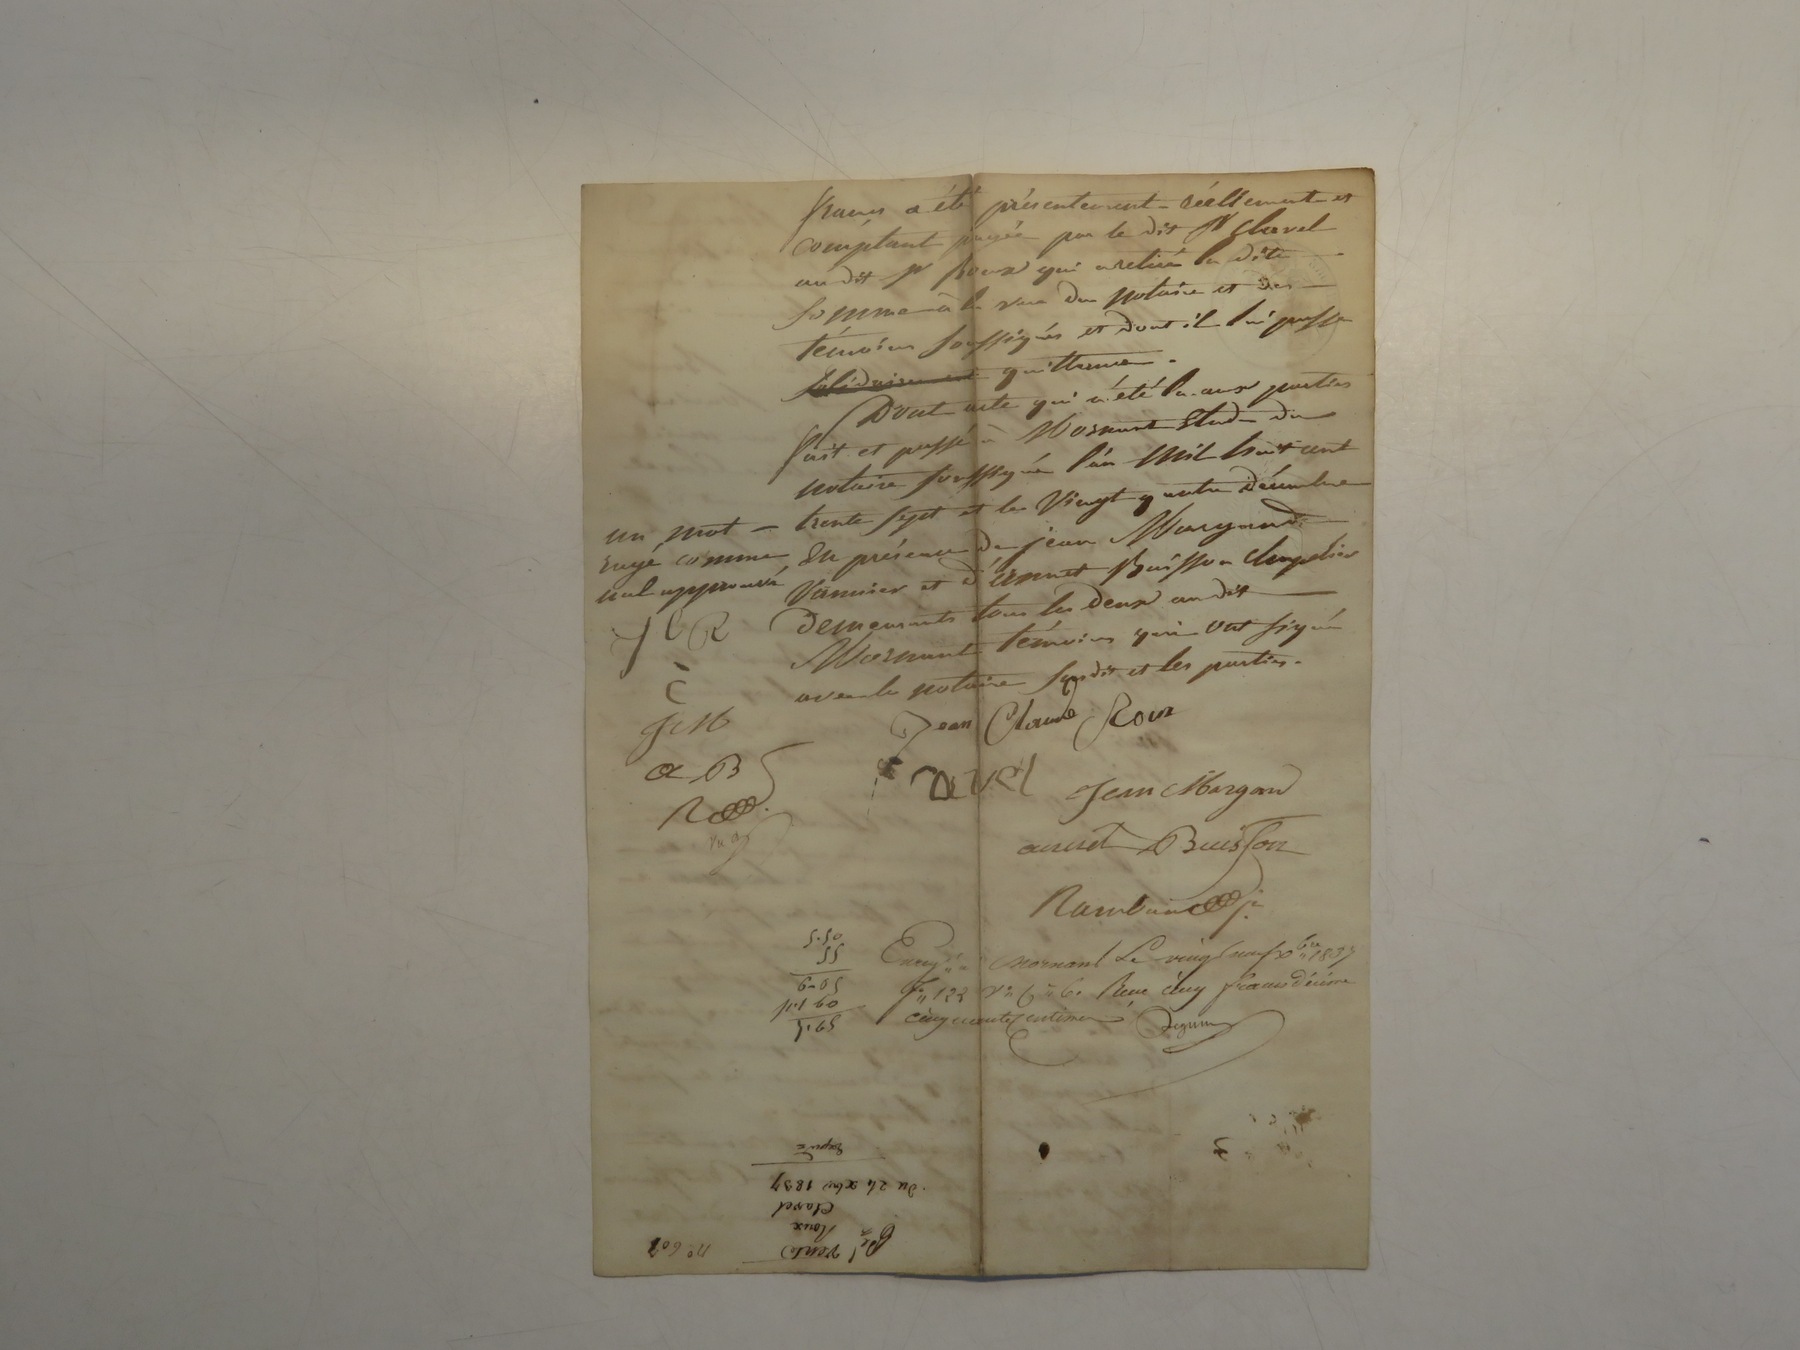 francs a été présentement réellement et
comptant payée par le dit Sr Clavel
au dit Sr Roux qui a retiré la dite
somme à la vue du notaire et des
témoins soussignés et dont il lui passe
solidairement quittance.
Dont acte qui a été lu aux parties
fait et passé à Mornant Etude du
notaire soussigné l'an mil huit cent
trente sept et le vingt quatre décembre
En présence de jean Margand
vannier et d'annet Buisson chapelier
demeurants tous les deux au dit
Mornant témoins qui ont signé
avec le notaire susdit et les parties.
un mot
rayé comme
nul approuvé
J C R
C
J M
a B
R
Jean Claude Roux
Jean Margand
annet Buisson
Enrg à Mornant Le vingt neuf xbre 1837
fo 122 Vo C 6. Reçu cinq francs décime
cinquante centimes
5.50
55
6-05
1.10
Vente
Roux
Clavel
du 24 xbre 1837
no 607